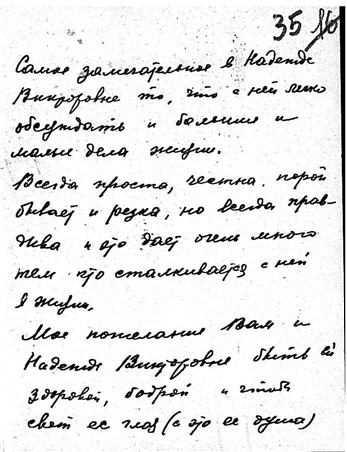 35 16
Самое замечательное в Надежде
Викторовне то, что с ней легко
обсуждать и большие и
малые дела жизни.
Всегда проста, честна, порой
бывает и резка, но всегда прав-
дива и это дает очень много
тем кто сталкивается с ней
в жизни.
Мое пожелание Вам и
Надежде Викторовне быть ей
здоровой, бодрой и чтоб
свет ее глаз (а это ее душа)